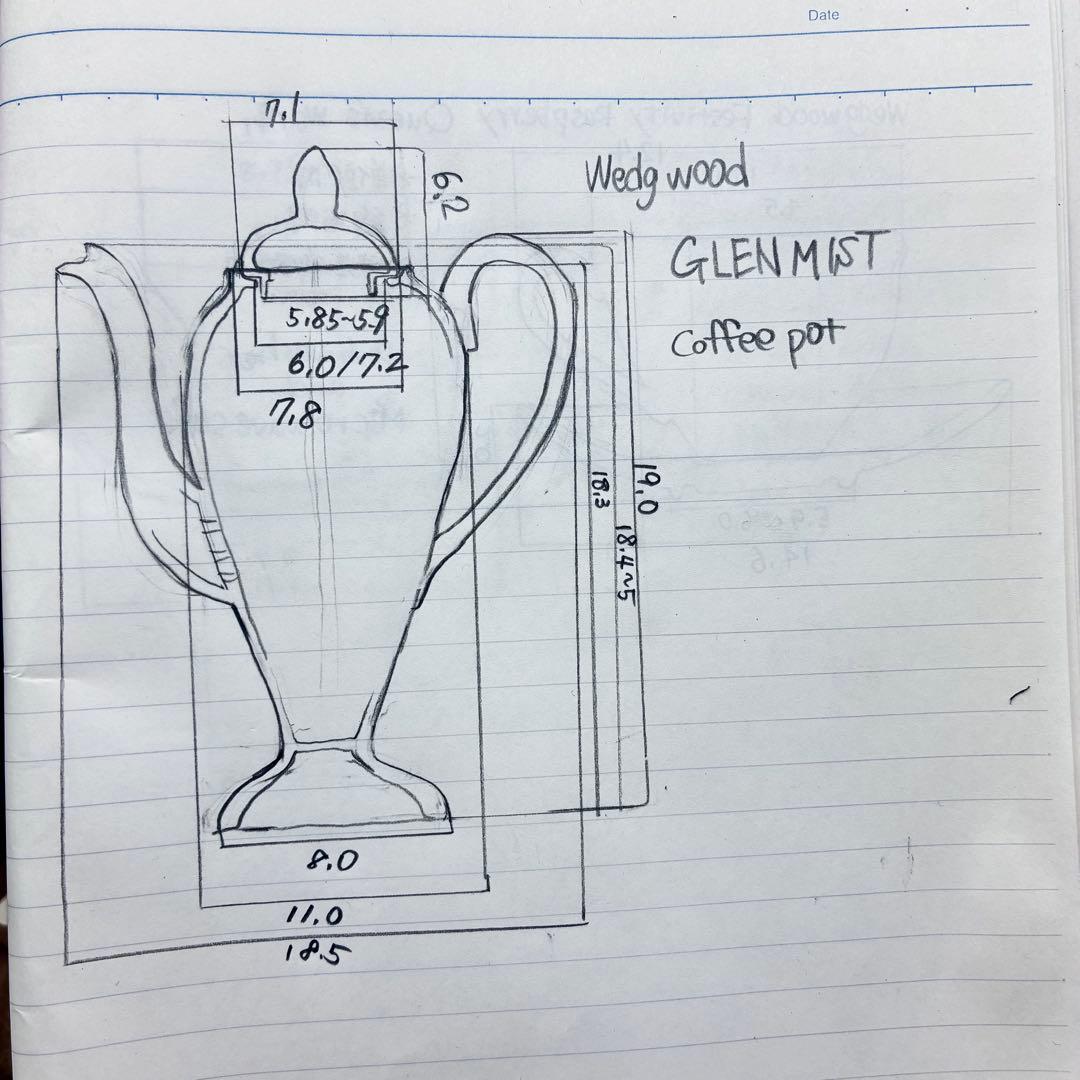 Date
7.1
6.2
Wedgwood
GLEN MIST
Coffee pot
5.85~5.9
6.0/7.2
7.8
19.0
18.3
18.4~5
8.0
11.0
18.5